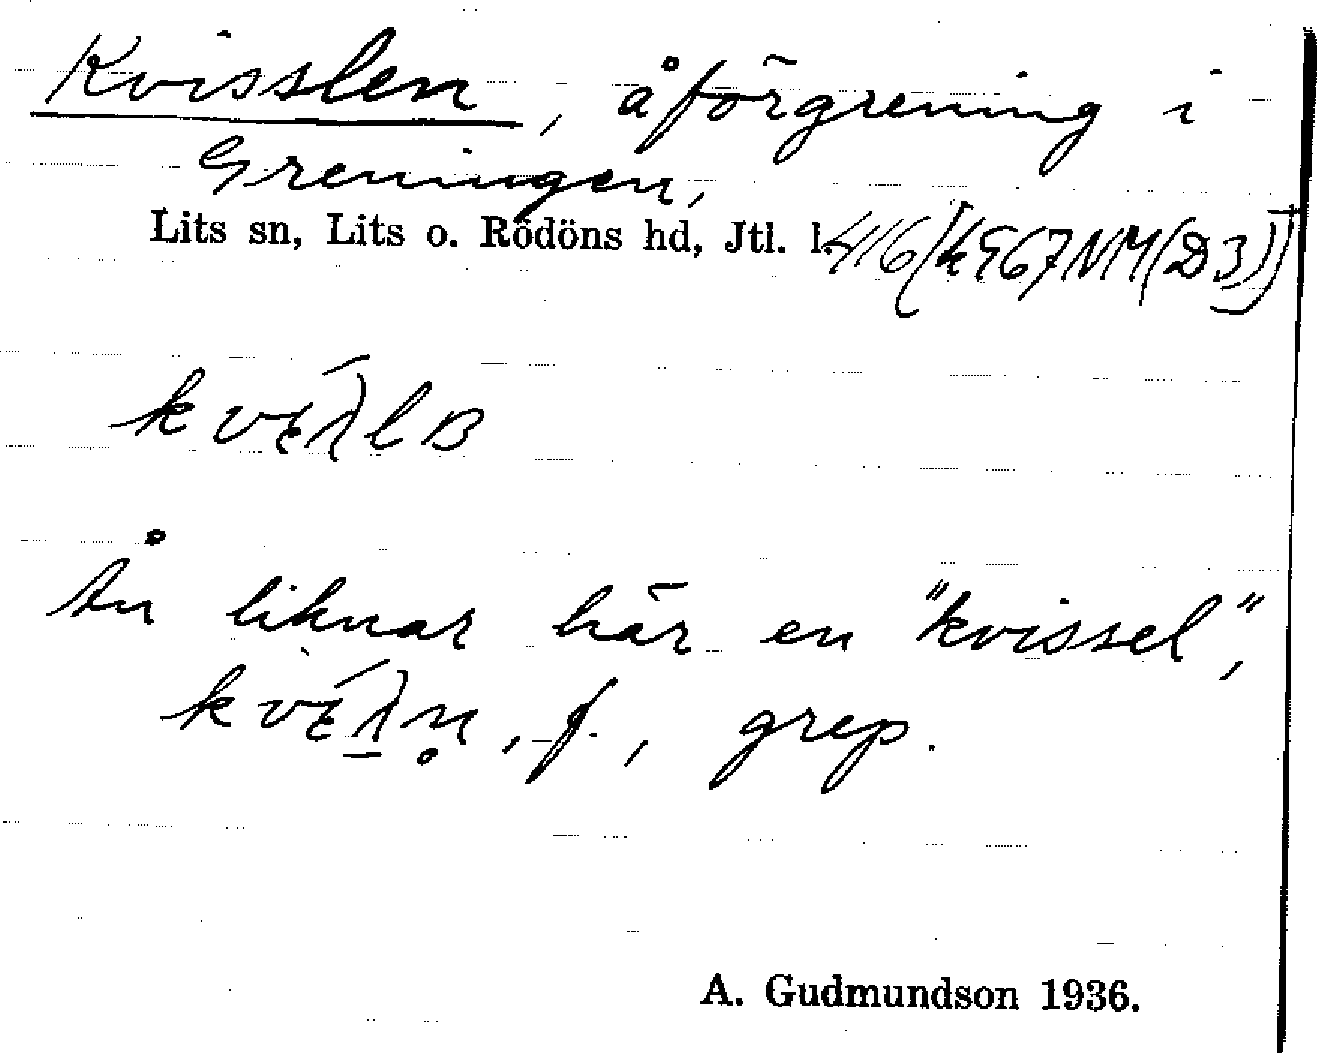 Kvisslen, åförgrening i
Greningen,
Lits sn, Lits o. Rödöns hd, Jtl. l.
Ån liknar här en "kvissel",
f., grep.
A. Gudmundson 1936.